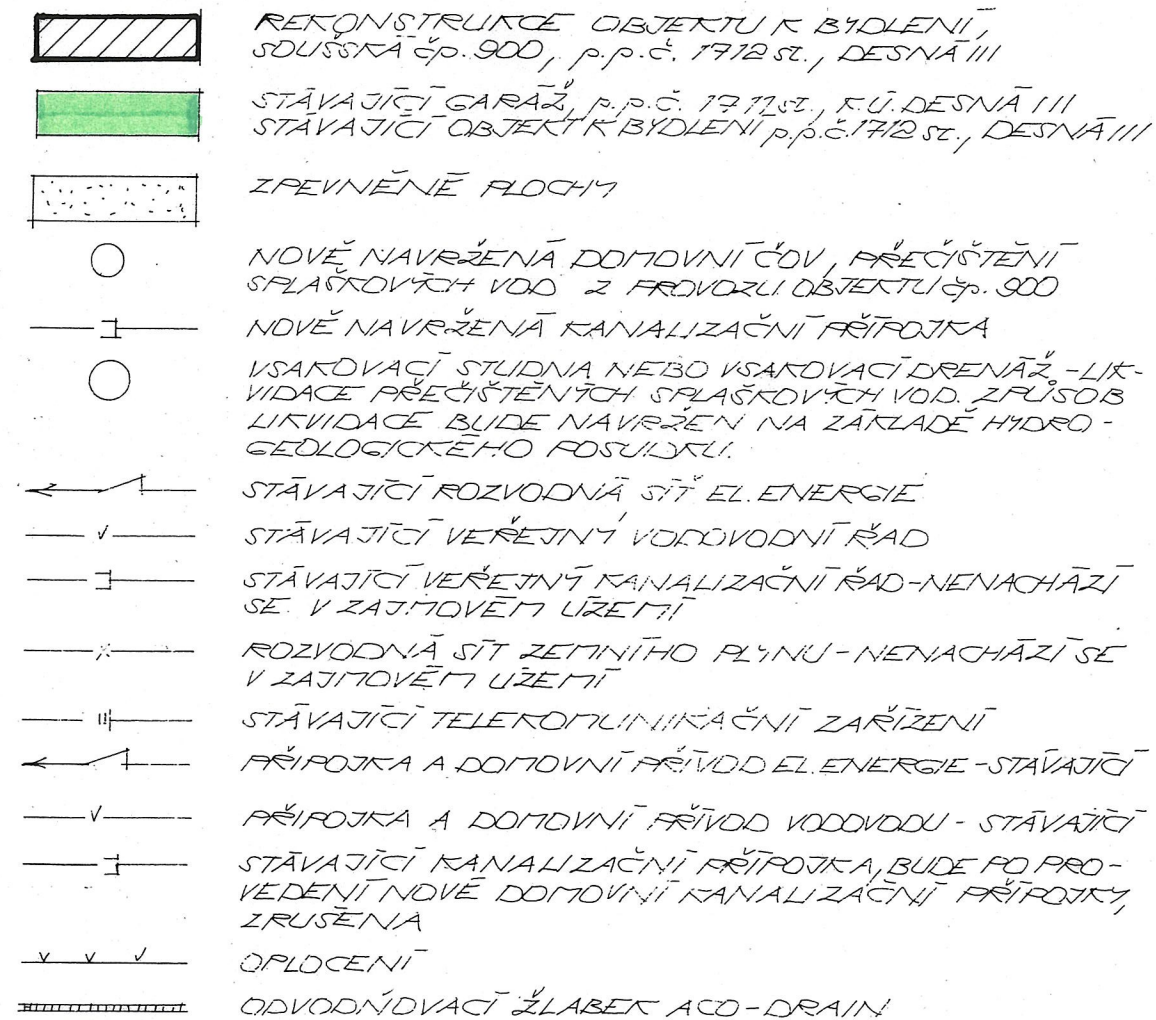 REKONSTRUKCE OBJEKTU K BYDLENÍ,
SOUŠSKÁ čp. 900, p.p.č. 1712 st., DESNÁ III
STÁVAJÍCÍ GARÁŽ, p.p.č. 1711 st., K.Ú. DESNÁ III
STÁVAJÍCÍ OBJEKT K BYDLENÍ p.p.č. 1712 st., DESNÁ III
ZPEVNĚNÉ PLOCHY
NOVĚ NAVRŽENÁ DOMOVNÍ ČOV, PŘEČIŠTĚNÍ
SPLAŠKOVÝCH VOD Z PROVOZU OBJEKTU čp. 900
NOVĚ NAVRŽENÁ KANALIZAČNÍ PŘÍPOJKA
VSAKOVACÍ STUDNA NEBO VSAKOVACÍ DRENÁŽ - LIK-
VIDACE PŘEČIŠTĚNÝCH SPLAŠKOVÝCH VOD. ZPŮSOB
LIKVIDACE BUDE NAVRŽEN NA ZÁKLADĚ HYDRO-
GEOLOGICKÉHO POSUDKU.
STÁVAJÍCÍ ROZVODNÁ SÍŤ EL. ENERGIE
STÁVAJÍCÍ VEŘEJNÝ VODOVODNÍ ŘAD
STÁVAJÍCÍ VEŘEJNÝ KANALIZAČNÍ ŘAD - NENACHÁZÍ
SE V ZÁJMOVÉM ÚZEMÍ
ROZVODNÁ SÍŤ ZEMNÍHO PLYNU - NENACHÁZÍ SE
V ZÁJMOVÉM ÚZEMÍ
STÁVAJÍCÍ TELEKOMUNIKAČNÍ ZAŘÍZENÍ
PŘÍPOJKA A DOMOVNÍ PŘÍVOD EL. ENERGIE - STÁVAJÍCÍ
PŘÍPOJKA A DOMOVNÍ PŘÍVOD VODOVODU - STÁVAJÍCÍ
STÁVAJÍCÍ KANALIZAČNÍ PŘÍPOJKA, BUDE PO PRO-
VEDENÍ NOVÉ DOMOVNÍ KANALIZAČNÍ PŘÍPOJKY,
ZRUŠENA
OPLOCENÍ
ODVODŇOVACÍ ŽLÁBEK ACO-DRAIN